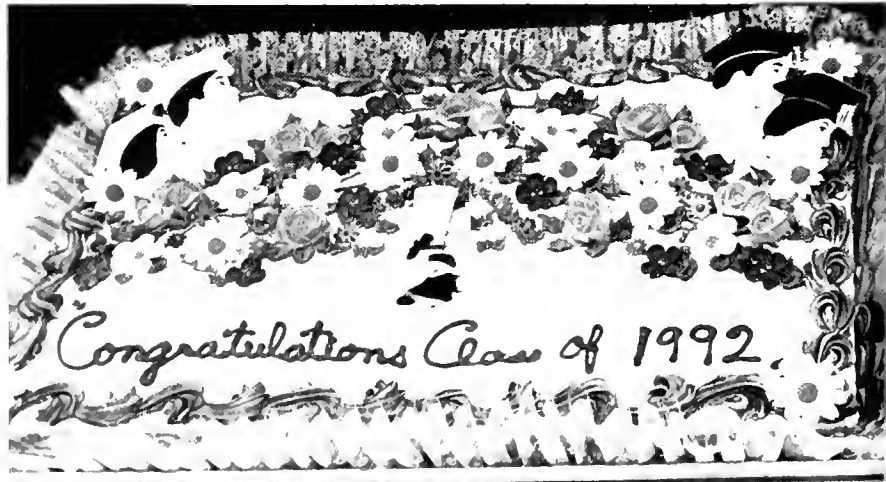 Congratulations Class of 1992